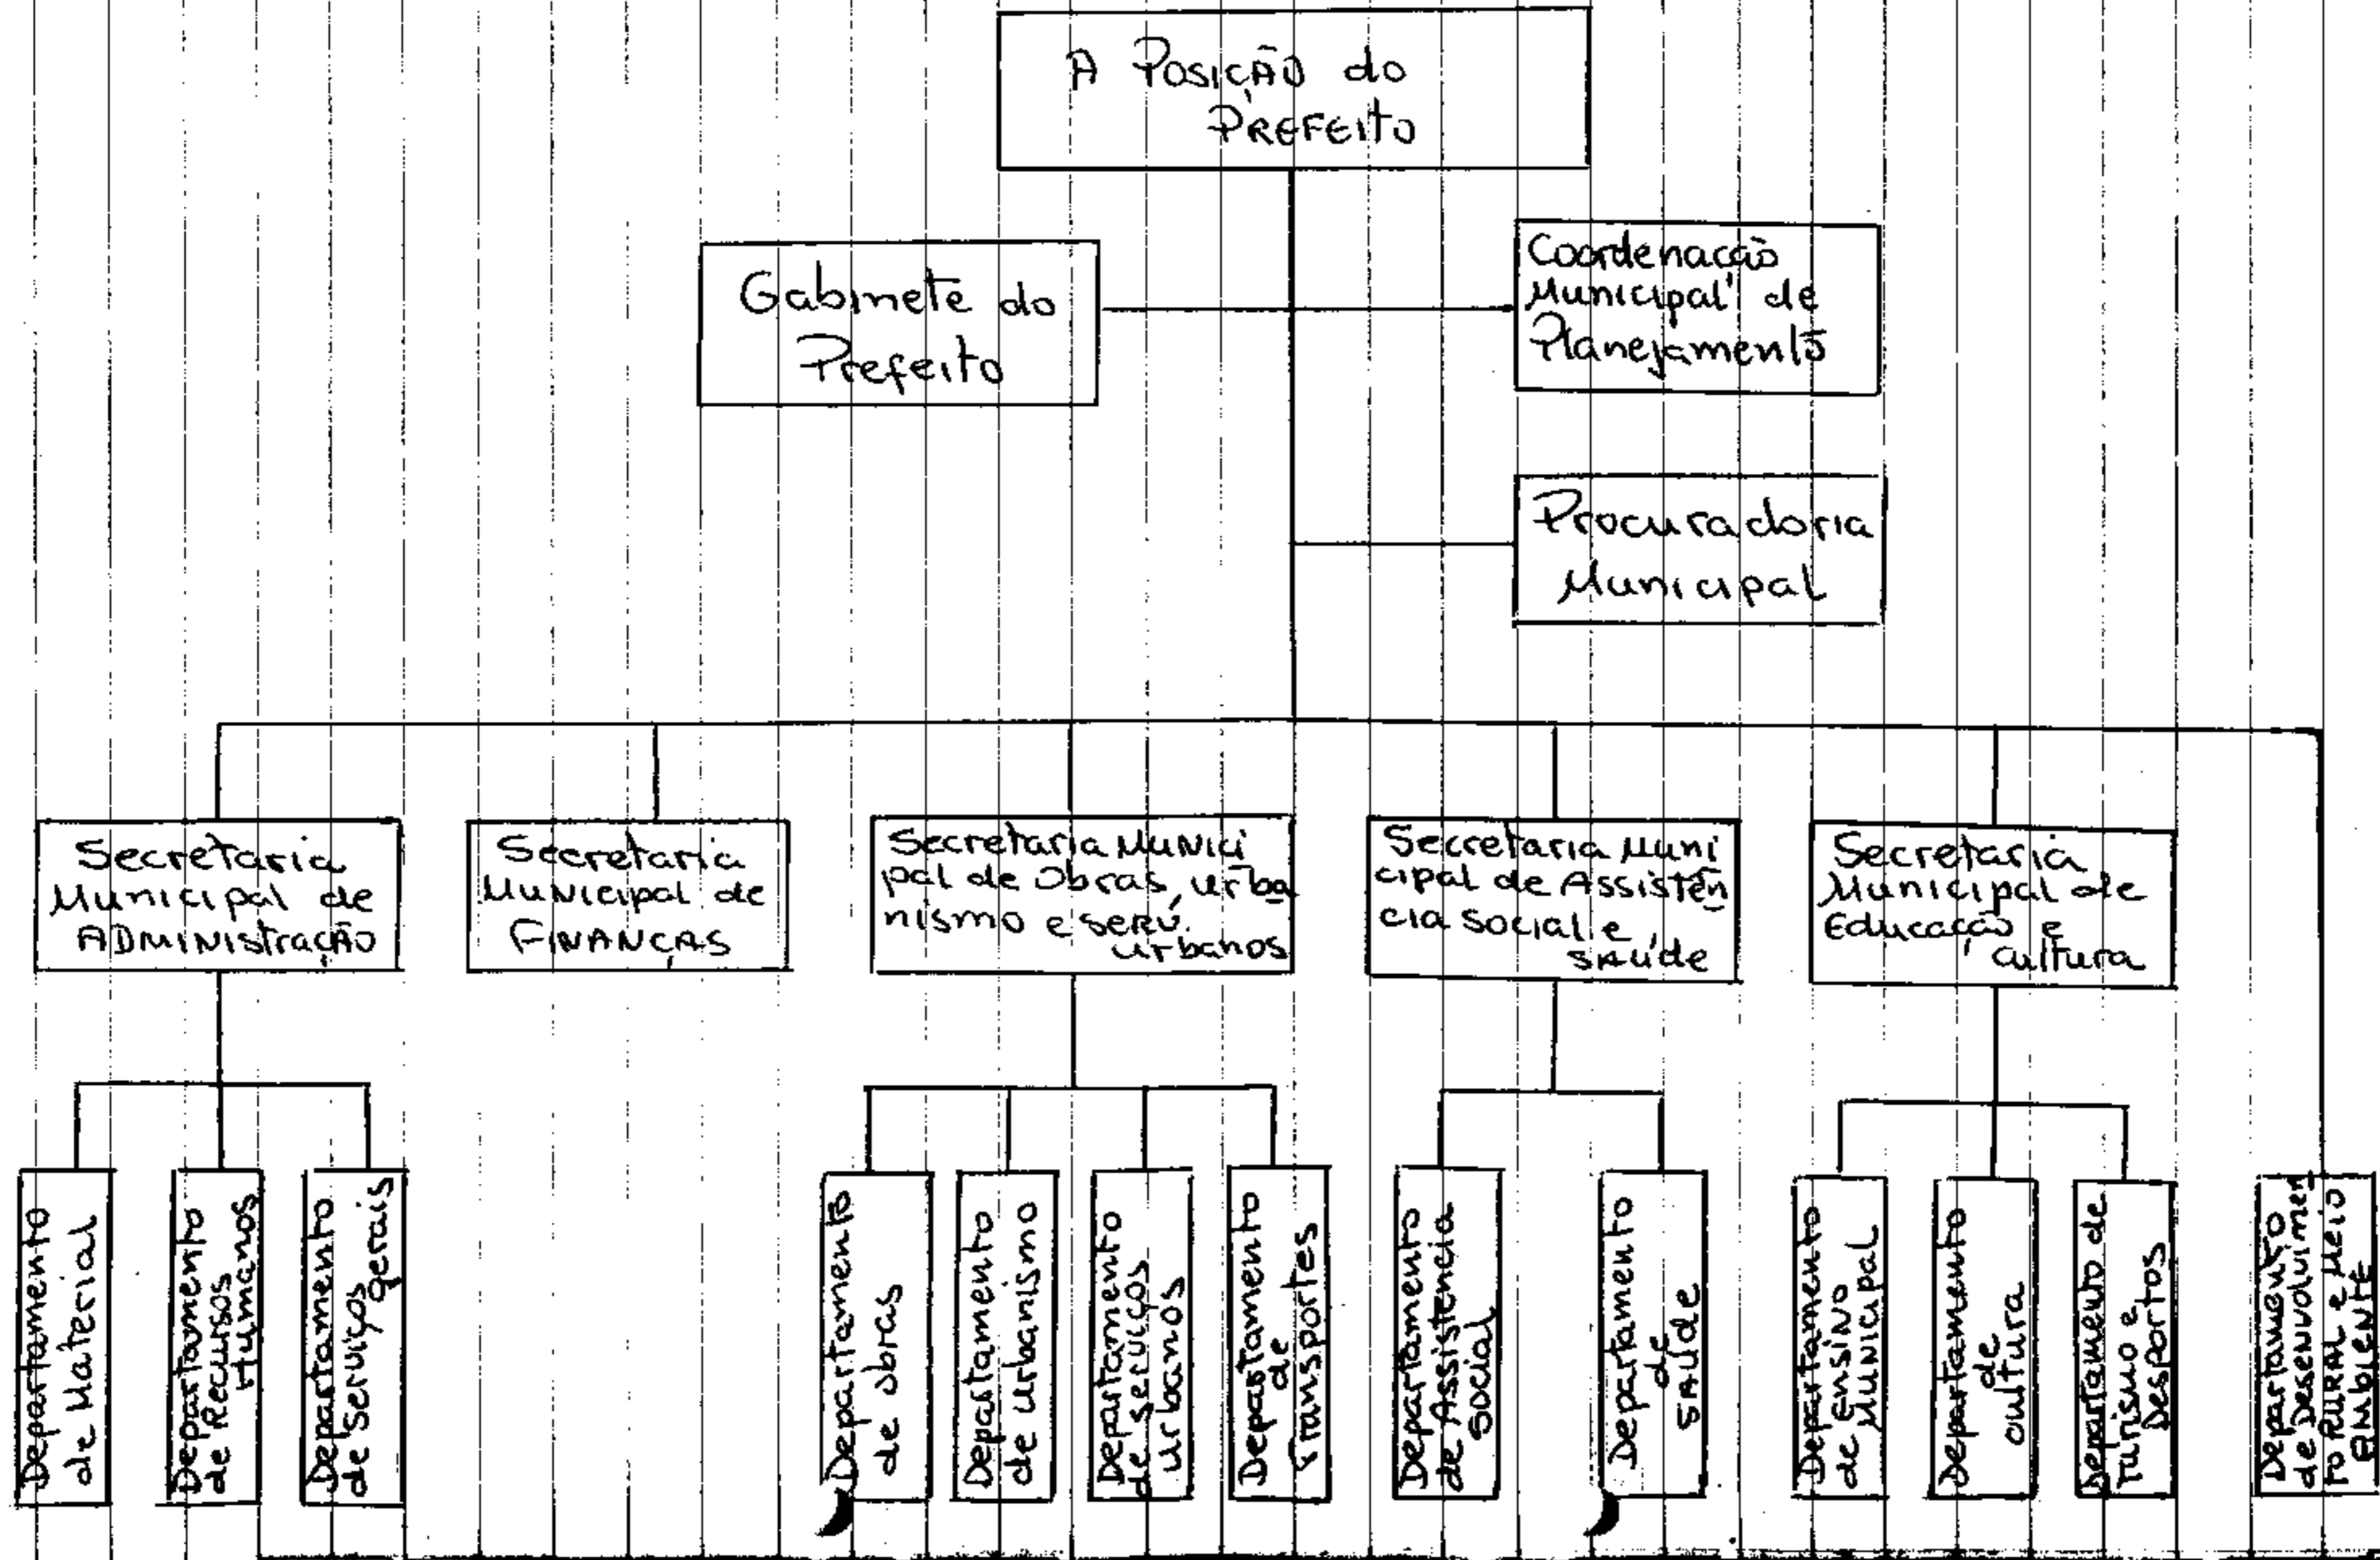 A Posição do
Prefeito
Gabinete do
Prefeito
Coordenação
Municipal de
Planejamento
Procuradoria
Municipal
Secretaria
Municipal de
ADMINIStração
Secretaria
Municipal de
FINANÇAS
Secretaria Munici
pal de Obras, urba
nismo e serv.
urbanos
Secretaria Muni
cipal de Assistên
cia social e
saúde
Secretaria
Municipal de
Educação e
cultura
Departamento
de Material
Departamento
de Recursos
Humanos
Departamento
de Serviços
gerais
Departamento
de obras
Departamento
de urbanismo
Departamento
de serviços
urbanos
Departamento
de
Transportes
Departamento
de Assistencia
social
Departamento
de
saúde
Departamento
de Ensino
Municipal
Departamento
de
cultura
Departamento de
Turismo e
Desportos
Departamento
de Desenvolvimen
to RURAL e Meio
AMBIENTE